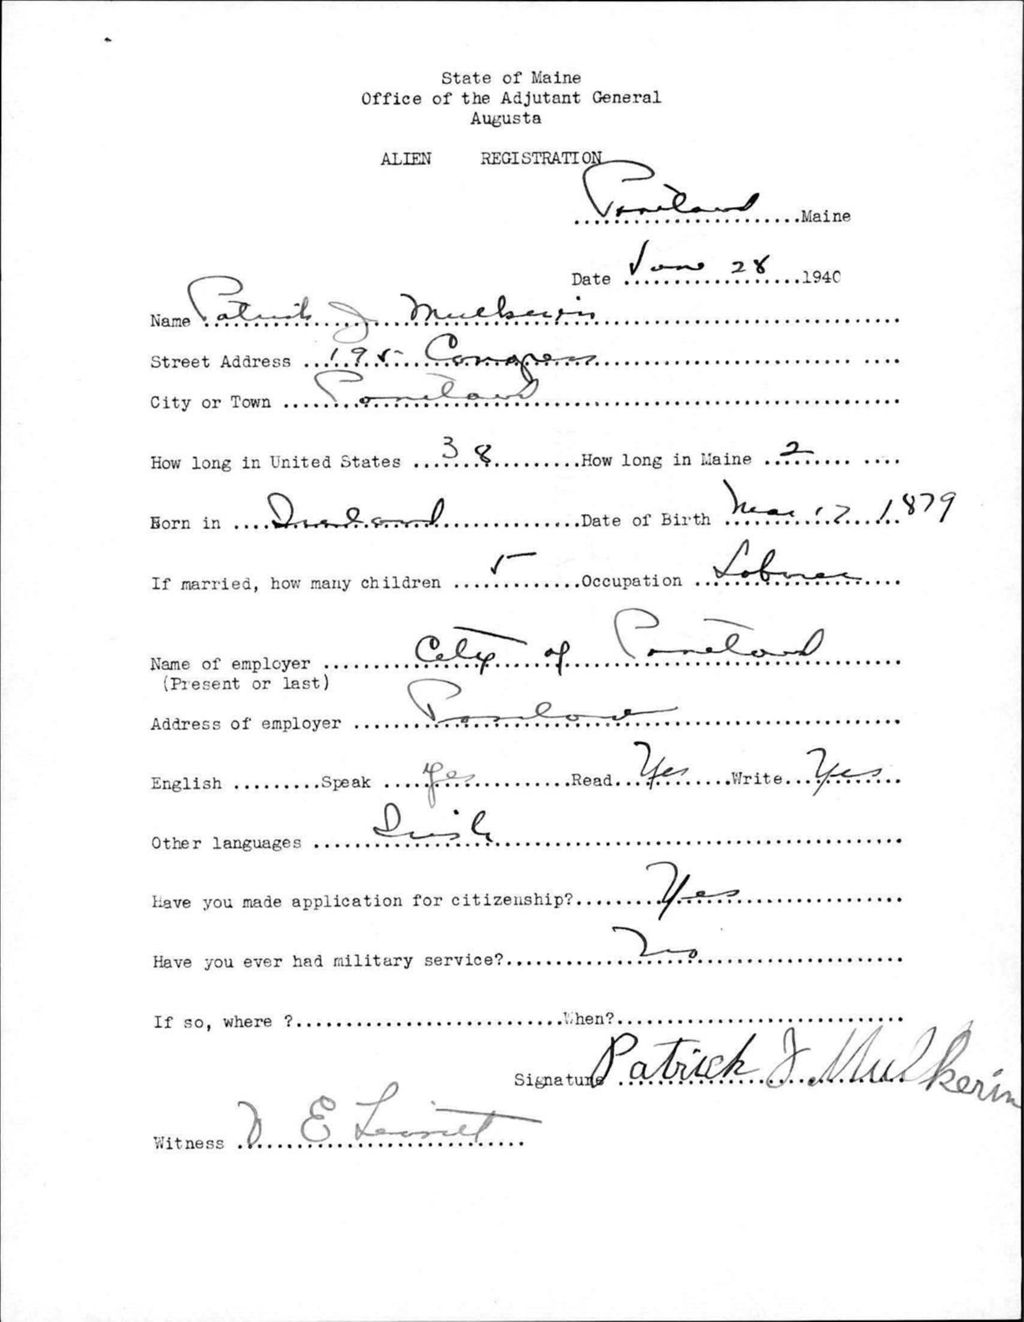 State of Maine
Office of the Adjutant General
Augusta
ALIEN REGISTRATION
Portland Maine
Date June 28 1940
Name Patrick J Mulkerin
Street Address 195 Congress
City or Town Portland
How long in United States 38 How long in Maine 2
Born in Ireland Date of Birth Mar 17 1879
If married, how many children 5 Occupation Laborer
Name of employer City of Portland
(Present or last)
Address of employer Portland
English Speak Yes Read Yes Write Yes
Other languages Irish
Have you made application for citizenship? Yes
Have you ever had military service? No
If so, where ? When?
Signature Patrick J. Mulkerin
Witness E